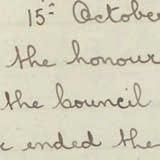 15th October
the honour
the Council
ended the